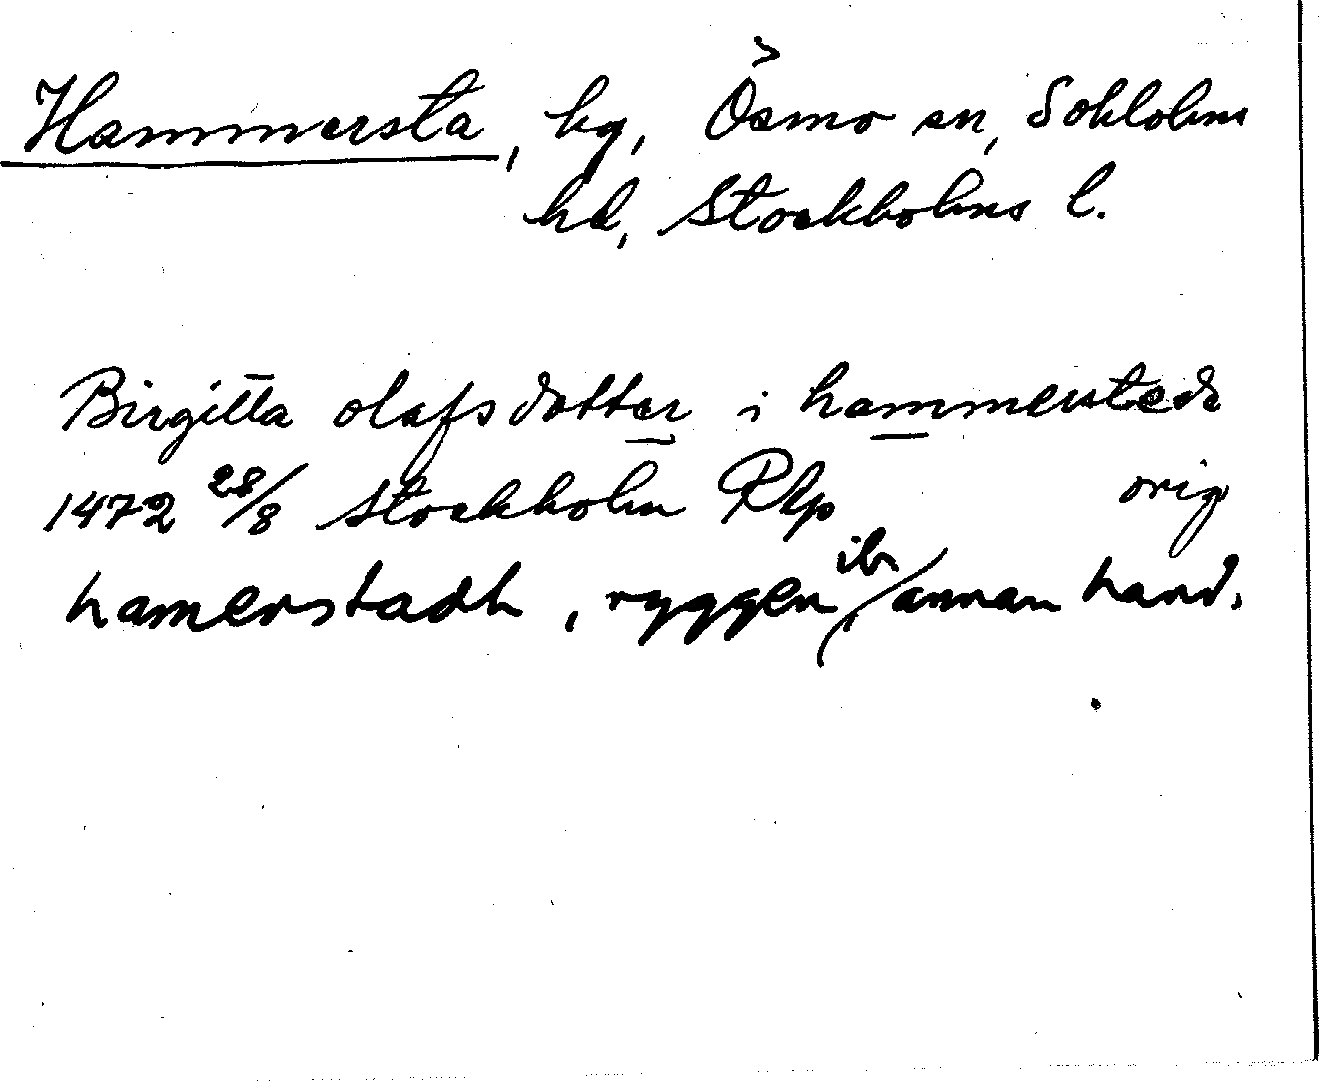 Hammersta, hg, Ösmo sn, Soklolms
hd, Stockholms l.
Birgitta olafsdotter i hammerstede
1472 28/8 Stockholm RAp orig
hamerstadh, ryggen ibr annan hand.